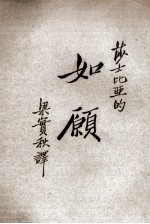 莎士比亞的
如願
梁實秋譯